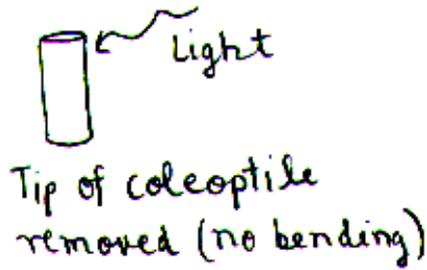 Light
Tip of coleoptile
removed (no bending)